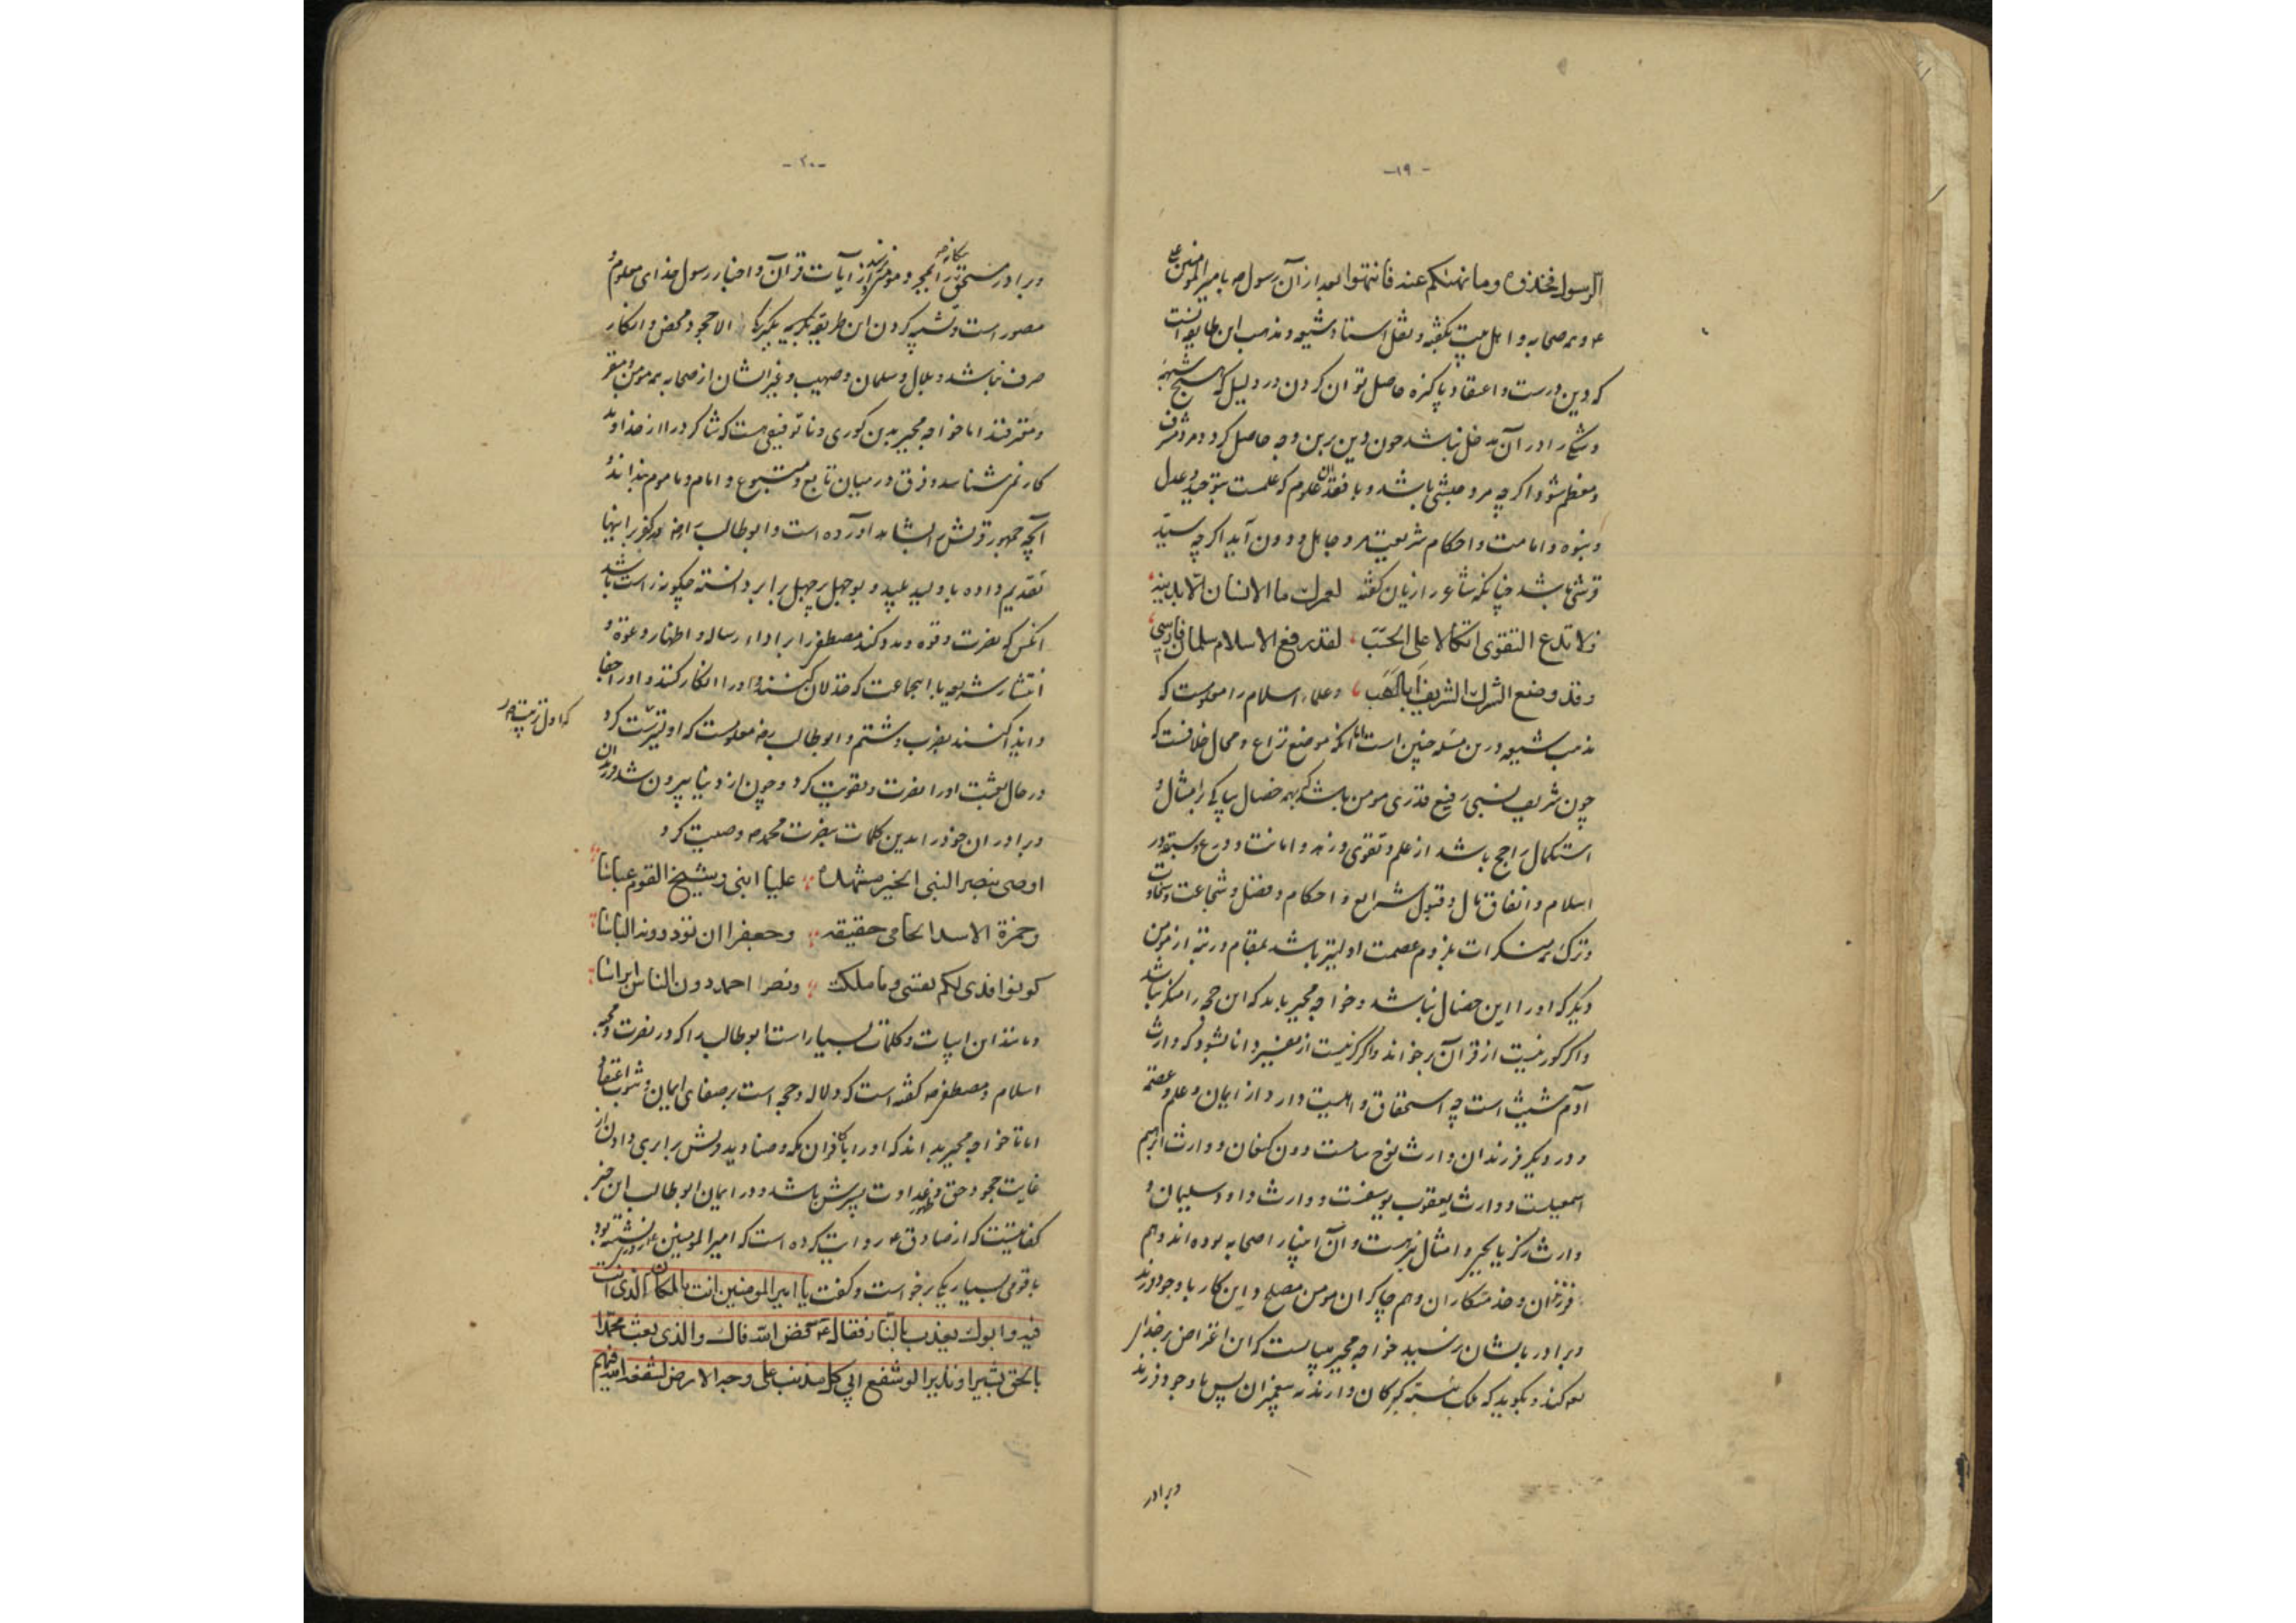 -۱۹-
الرسول فخذوه وما نهیکم عنه فانتهوا بعد از آن رسول ص بامیر المومنین ع
و همه صحابه و اهل بیت بگفته و نقل استاد شیعه و مذهب این طایفه آنست
که دین درست و اعتقاد پاکیزه حاصل توان کردن در دلیل که هیچ شبهه
و شکی را در آن مدخل نباشد چون دین برین وجه حاصل کرد مرد مشرف
و معظم شود اگرچه مرد حبشی باشد و با فقدان علوم که علمست بتوحید و عدل
و نبوه و امامت و احکام شریعت مرد جاهل و دون آید اگرچه سید
قرشی باشد چنانکه شاعر ازیان گفته لعمرك ما الانسان الّا بدینه
فلا تدع التقوی اتکالا علی الحسب لقد رفع الاسلام سلمان فارسی
وقد وضع الشرك الشریف ابالهب و علماء اسلام را معلومست که
مذهب شیعه درین مسئله چنین است اما آنکه موضع نزاع و محال خلافست که
چون شریف نسبی رفیع قدری مومن باشد که بهمه خصال نیکی بر امثال و
استکمال راجح باشد از علم و تقوی و زهد و امانت و ورع و سبقت در
اسلام و انفاق مال و قبول شرایع و احکام و فضل و شجاعت و سخاوت
و ترک همه منکرات بلزوم عصمت اولیتر باشد بمقام و رتبه از مومن
دیگر که او را این خصال نباشد و خواجه مجبر باید که این حجه را منکر نباشد
و اگر کور نیست از قرآن برخواند و اگر کر نیست از مفسر دانا بشنود که وارث
آدم شیث است چه استحقاق و اهلیت دارد از ایمان و علم و عصمة
و در دیگر فرزندان وارث نوح سامست دون کنعان و وارث ابراهیم
اسمعیلست و وارث یعقوب یوسفست و وارث داود سلیمان و
وارث زکریا یحیی و امثال برینست و آن انبیا را صحابه بوده اند و هم
فرزندان و خدمتکاران و هم چاکران مومن مصلح و این کار با وجود فرزند
و برادر بایشان نرسید خواجه مجبر میبایست که این اعتراض بر خدای
کند و بگوید که ملک نسبت گبرکان دارند نه پیغمبران پس با وجود فرزند
و برادر
-۲۰-
و برادر مستحق تر و مومن تر از آیات قرآن و اخبار رسول خدای معلوم و
مصور است و تشبیه کردن این طریقه بگبرکان الا جحود محض و انکار
صرف نباشد و بلال و سلمان و صهیب و غیر ایشان از صحابه همه مومن و مقر
و معترفند اما خواجه مجبر بدین کوری و ناتوفیقی هست که شاکرد را از خداوند
کار نمیشناسد و فرق در میان تابع و متبوع و امام و ماموم نداند
آنچه جمهور قریش ابشاهد آورده است و ابوطالب را رضه در کفر بر اینها
تقدیم داده با ولید پلید و بوجهل پرجهل برابر دانسته چگونه راست باشد
آنکس که نصرت و قوه و مدد کند مصطفی را بر اداء رساله و اظهار دعوة و
انتشار شریعه با آنجماعت که خذلان کنند و او را انکار کنند و او را جفا
و ایذا کنند بضرب و شتم و ابوطالب رضه معلومست که او تربیت کرد
که اول تربیت او
در حال بعثت او را نصرت و تقویت کرد و چون از دنیا بیرون شد فرزندان
و برادران خود را بدین کلمات بنصرت محمد ص وصیت کرد
اوصی بنصر النبی الخیر مشهده علیا ابنی و شیخ القوم عباسا
وحمزة الاسد الحامی حقیقته وجعفرا ان تذودوا دونه الباسا
کونوا فدی لکم نفسی وما ملکت ونصر احمد دون الناس اتراسا
و مانند این ابیات و کلمات بسیار است ابوطالب را که در نصرت و محبه
اسلام و مصطفی ص گفته است که دلاله و حجه است بر صفای ایمان و ثبوت اعتقاد
اما تا خواجه مجبر بداند که او را با کافران مکه و صنادید قریش برابری دادن از
غایت جحود حق و ظهور عداوت پسرش باشد و در ایمان ابوطالب این خبر
کفایتست که از صادق ع روایت کرده است که امیر المومنین ع روزی نشسته بود
با قومی بسیار یکی برخواست و کفت یا امیر المومنین انت بالمکان الذی انت
فیه و ابوك یعذب بالنار فقال ع فض الله فاك والذی بعث محمدا
بالحق بشیرا ونذیرا لو شفع ابی کل مذنب علی وجه الارض لشفعه الله فیهم